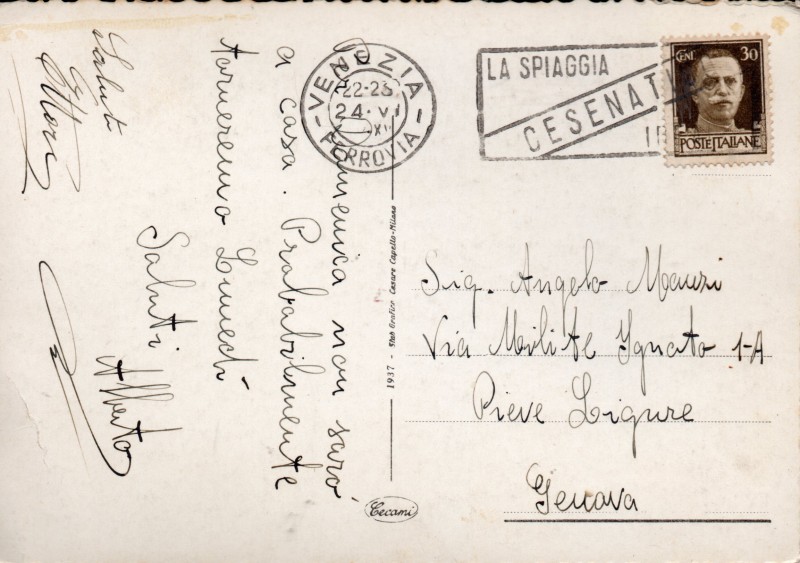 Domenica non sarò
a casa. Probabilmente
torneremo Lunedì
Saluti
Alberto
Saluti
VENEZIA
22-23
24·VI
XV
FERROVIA
LA SPIAGGIA
CESENATI
CENT. 30
POSTE ITALIANE
Sig. Angelo Mauzi
Via Milite Ignoto 1-A
Pieve Ligure
Genova
1937 - Stab Grafico Cesare Capello-Milano
Cecami